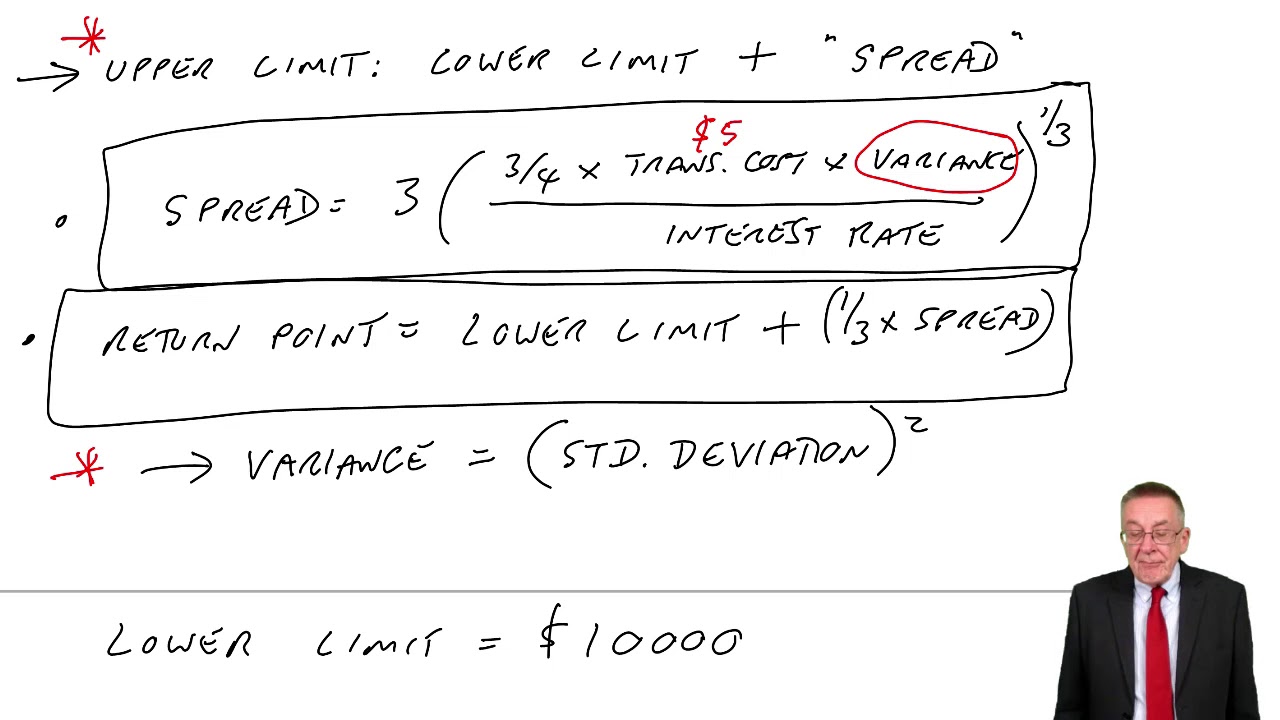 * → UPPER LIMIT: LOWER LIMIT + "SPREAD"
$5
• SPREAD = 3 ( 3/4 × TRANS. COST × VARIANCE / INTEREST RATE ) 1/3
• RETURN POINT = LOWER LIMIT + (1/3 × SPREAD)
* → VARIANCE = (STD. DEVIATION)²
LOWER LIMIT = $10000